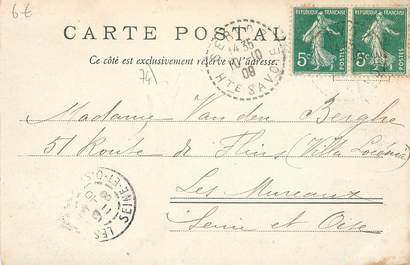 6€
CARTE POSTALE
Ce côté est exclusivement réservé à l'adresse.
74)
14 35
10
09
HTE SAVOIE
REPUBLIQUE FRANÇAISE
5c POSTES
REPUBLIQUE FRANÇAISE
5c POSTES
Madame Van den Berghe
51 Route de Flins (Villa
Les Mureaux
Seine et Oise
LES
SEINE-ET-OISE